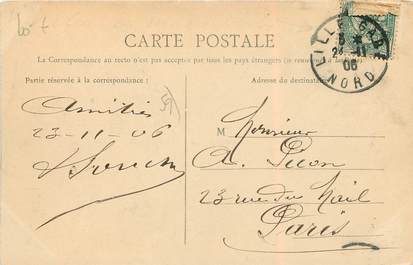 CARTE POSTALE
La Correspondance au recto n'est pas acceptée par tous les pays étrangers
Partie réservée à la correspondance:
Adresse du destinataire
LILLE GARE
24-11
06
NORD
Amitiés
23-11-06
M Monsieur
A.
23 rue du Mail
Paris